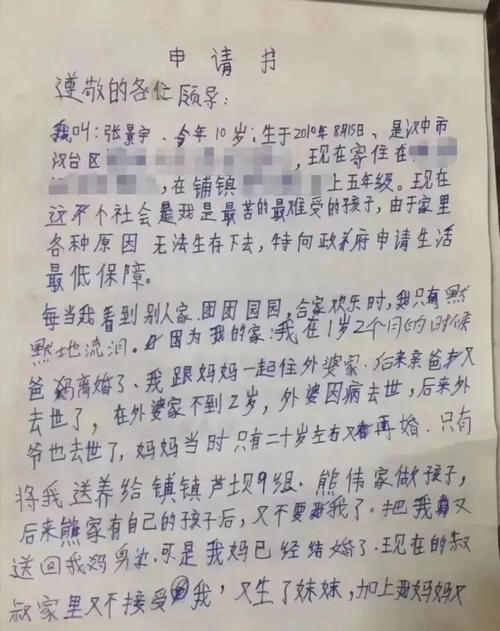 申请书
遵敬的各位领导:
我叫:张景宇、今年10岁;生于2010年8月15日、是汉中市
汉台区 ,现在寄住在
,在铺镇 上五年级。现在
这个社会是我是最苦的最难受的孩子,由于家里
各种原因 无法生存下去,特向政府申请生活
最低保障。
每当我看到别人家.团团园园,合家欢乐时,我只有默
默地流泪。因为我的家:我在1岁2个月的时候
爸妈离婚了、我跟妈妈一起住外婆家.后来亲爸又
去世了,在外婆家不到2岁,外婆因病去世,后来外
爷也去世了,妈妈当时只有二十岁左右又再婚.只有
将我送养给镇芦坝9组.熊伟家做孩子,
后来熊家有自己的孩子后,又不要我了。把我又
送回我妈身边.可是我妈已经结婚了.现在的叔
叔家里又不接受我,又生了妹妹,加上我妈妈又